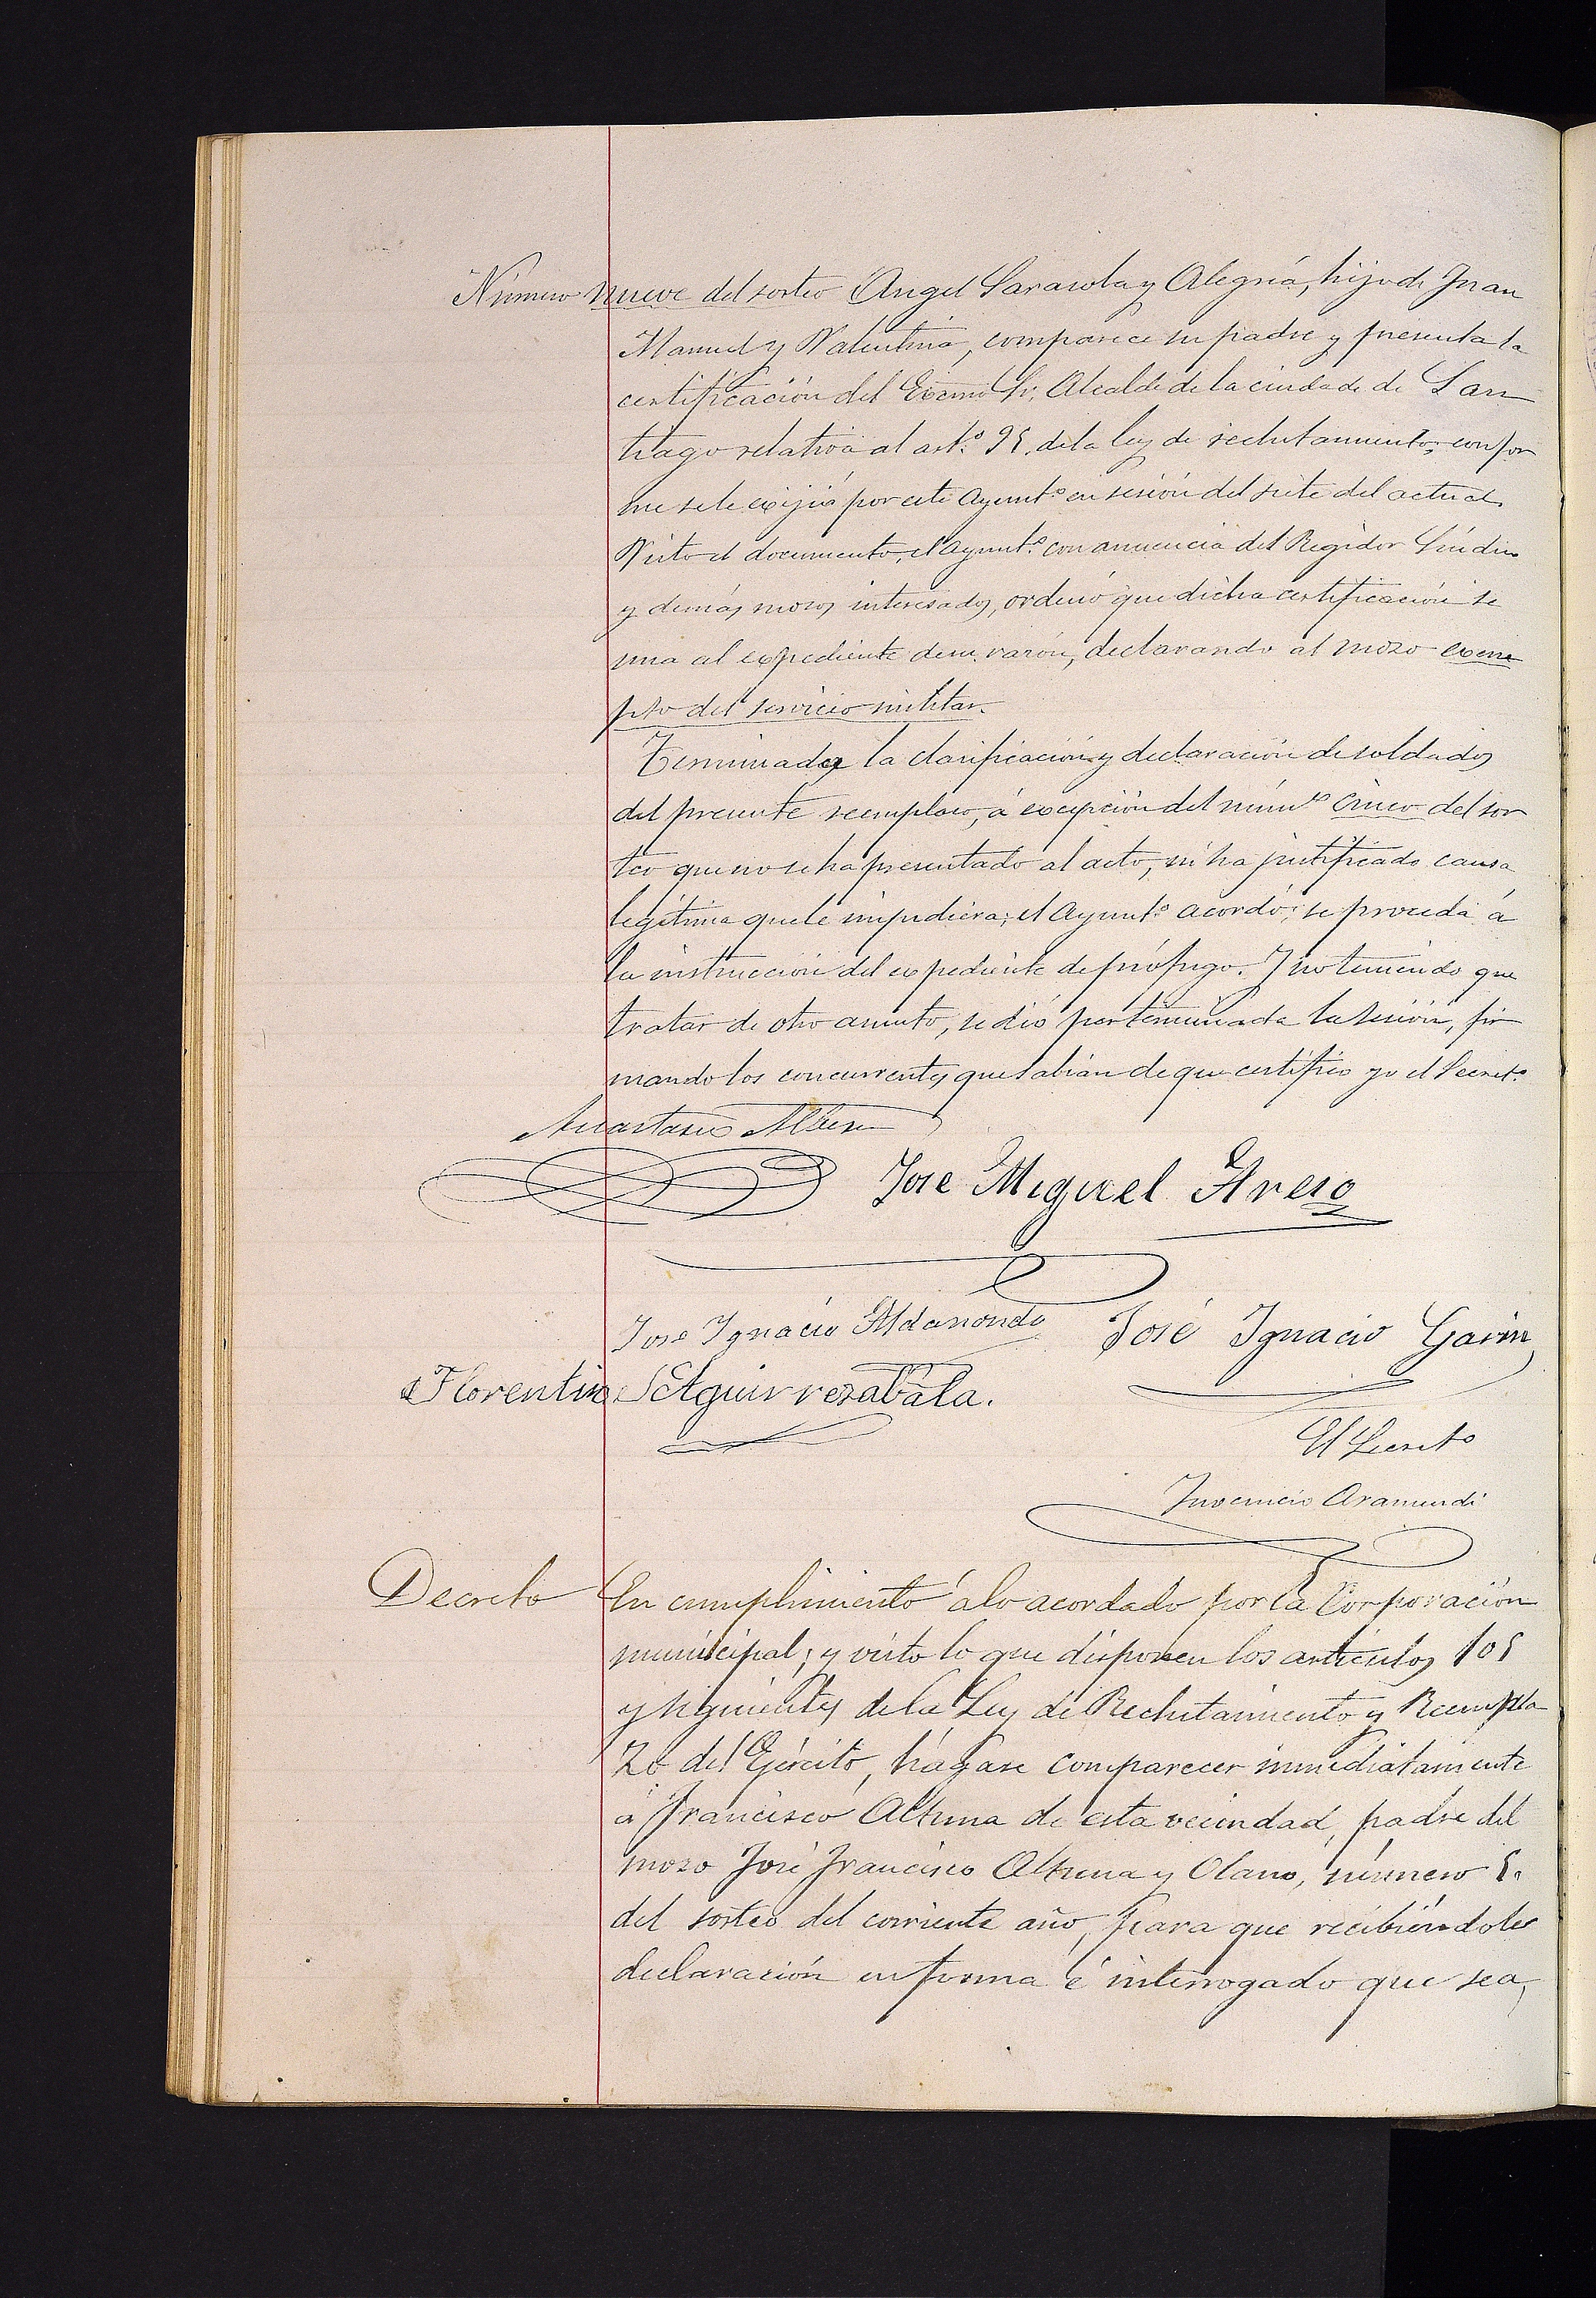 Número nueve del sorteo Angel Sarasola y Alegría, hijo de Juan
Manuel y Valentina, comparece su padre y presenta la
certificación del Excmo Sr. Alcalde de la ciudade de San
tiago relativa al artº. 95. de la ley de reclutamiento, confor
me se le exijió por este Ayuntº en sesión del siete del actual.
Visto el documento, el Ayuntº. con anuencia del Regidor Síndico
y demás mozos interesados, ordenó que dicha certificación se
una al expediente de su razón, declarando al mozo exem
pto del servicio militar.
Terminada la clasificación y declaración de soldados
del presente reemplazo, á excepción del númº cinco del sor
teo que no se ha presentado al acto, ni ha justificado causa
legítima que le impidiera; el Ayuntº acordó: se proceda á
la instrucción del expediente de prófugo. Y no teniendo que
tratar de otro asunto, se dió por terminada la sesión, fir
mando los concurrentes que sabían de que certifico yo el Secretº
Anastasio
José Miguel Areso
Jose Ignacio Aldanondo José Ignacio Garin
Florentin Aguirrezabala.
El Secretº
Juvencio Aramendi
Decreto En cumplimiento á lo acordado por la Corporación
municipal; y visto lo que disponen los artículos 105
y siguientes de la Ley de Reclutamiento y Reempla
zo del Ejército, hágase comparecer inmediatamente
á Francisco Altuna de esta vecindad, padre del
mozo José Francisco Altuna y Olano, número 5.
del sorteo del corriente año, para que recibiéndoles
declaración en forma é interrogado que sea,